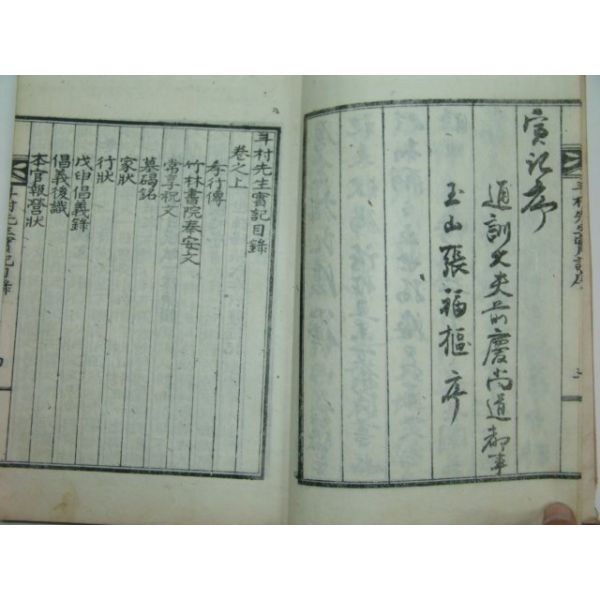 實記序
通訓大夫前慶尚道都事
玉山張福樞序
斗村先生實記目錄
卷之上
孝行傳
竹林書院奉安文
常享祝文
墓碣銘
家狀
行狀
戊申倡義錄
倡義後識
本官報營狀
斗村先生實記目錄